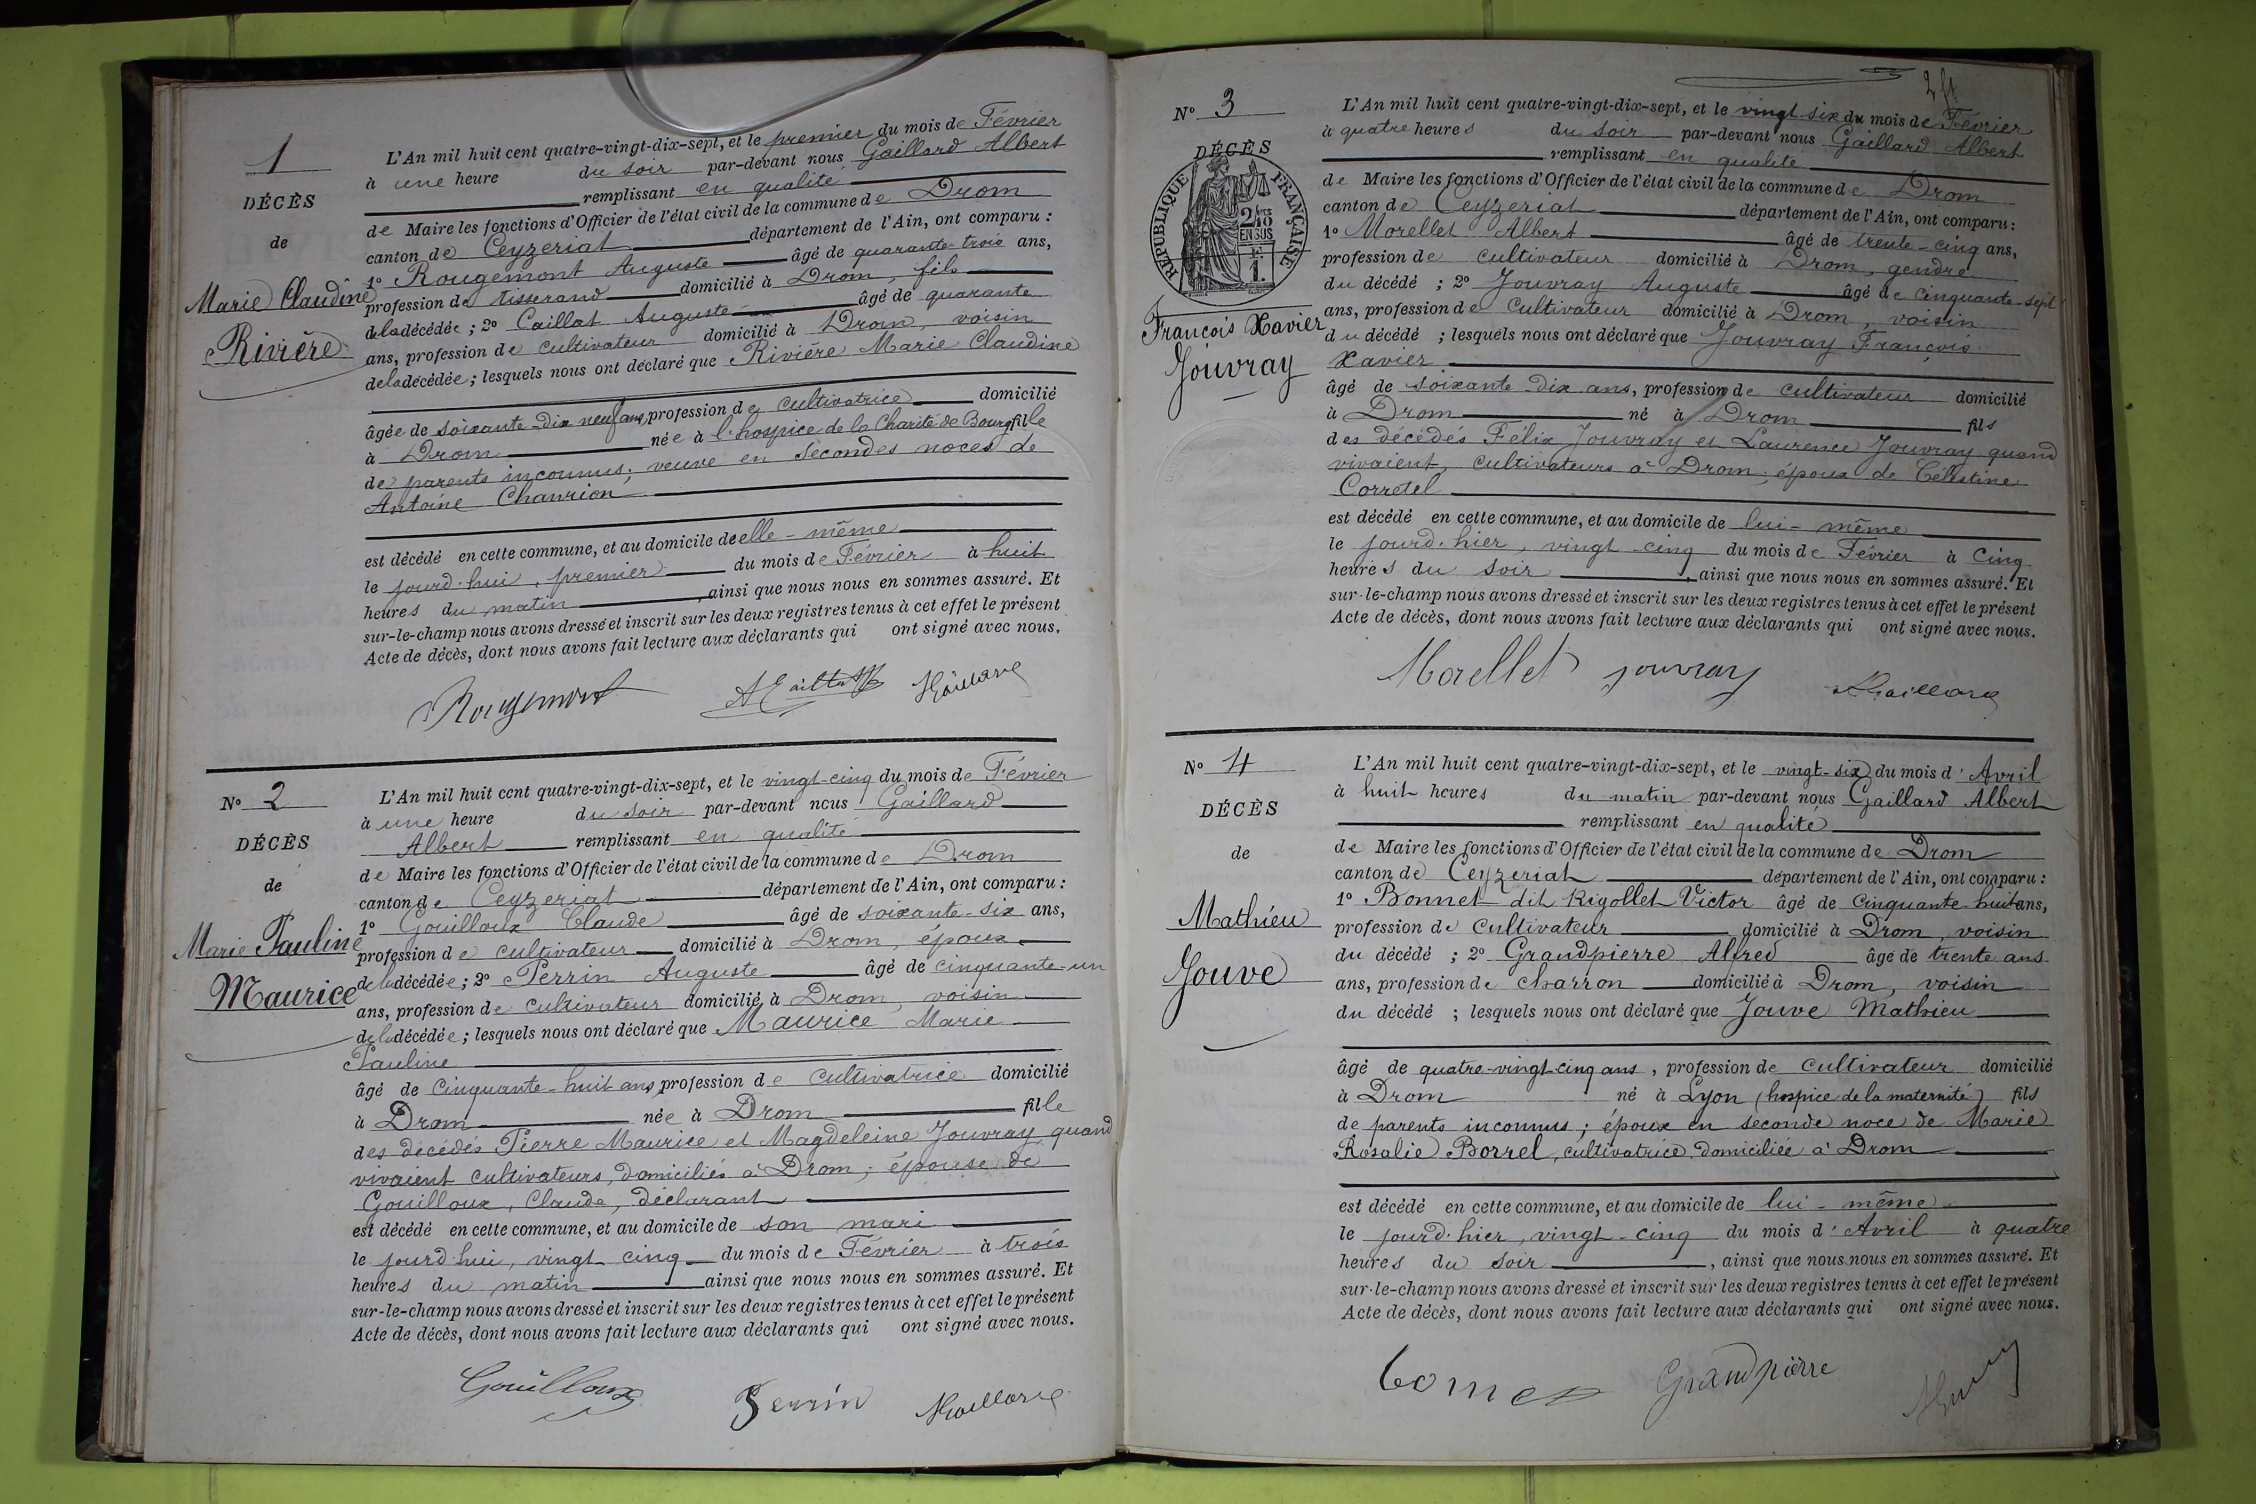 1
DÉCÈS
de
Marie Claudine
Rivière
L'An mil huit cent quatre-vingt-dix-sept, et le premier du mois de Février
à une heure du soir par-devant nous Gaillard Albert
remplissant en qualité
de Maire les fonctions d'Officier de l'état civil de la commune de Drom
canton de Ceyzeriat département de l'Ain, ont comparu :
1º Rougemont Auguste âgé de quarante-trois ans,
profession de tisserand domicilié à Drom, fils
de la décédée ; 2º Caillat Auguste âgé de quarante
ans, profession de cultivateur domicilié à Drom, voisin
de la décédée ; lesquels nous ont déclaré que Rivière Marie Claudine
âgée de soixante-dix neuf ans, profession de cultivatrice domicilié
à Drom née à l'hospice de la Charité de Bourg fille
de parents inconnus ; veuve en secondes noces de
Antoine Chaurion,
est décédé en cette commune, et au domicile de elle-même
le jourd'hui, premier du mois de Février à huit
heures du matin, ainsi que nous nous en sommes assuré. Et
sur-le-champ nous avons dressé et inscrit sur les deux registres tenus à cet effet le présent
Acte de décès, dont nous avons fait lecture aux déclarants qui ont signé avec nous.
Rougemont A Caillat AGaillard
Nº 2
DÉCÈS
de
Marie Pauline
Maurice
L'An mil huit cent quatre-vingt-dix-sept, et le vingt-cinq du mois de Février
à une heure du soir par-devant nous Gaillard
Albert remplissant en qualité
de Maire les fonctions d'Officier de l'état civil de la commune de Drom
canton de Ceyzeriat département de l'Ain, ont comparu :
1º Gouilloux Claude âgé de soixante-six ans,
profession de cultivateur domicilié à Drom, époux
de la décédée ; 2º Perrin Auguste âgé de cinquante-un
ans, profession de cultivateur domicilié à Drom, voisin
de la décédée ; lesquels nous ont déclaré que Maurice Marie
Pauline
âgé de cinquante-huit ans, profession de cultivatrice domicilié
à Drom née à Drom fille
des décédés Pierre Maurice et Magdeleine Jouvray quand
vivaient cultivateurs, domiciliés à Drom ; épouse de
Gouilloux, Claude, déclarant
est décédé en cette commune, et au domicile de son mari
le jourd'hui, vingt cinq du mois de Février à trois
heures du matin ainsi que nous nous en sommes assuré. Et
sur-le-champ nous avons dressé et inscrit sur les deux registres tenus à cet effet le présent
Acte de décès, dont nous avons fait lecture aux déclarants qui ont signé avec nous.
Gouilloux Perrin AGaillard
Nº 3
DÉCÈS
RÉPUBLIQUE FRANÇAISE
François Xavier
Jouvray
L'An mil huit cent quatre-vingt-dix-sept, et le vingt six du mois de Février
à quatre heures du soir par-devant nous Gaillard Albert
remplissant en qualité
de Maire les fonctions d'Officier de l'état civil de la commune de Drom
canton de Ceyzeriat département de l'Ain, ont comparu :
1º Morellet Albert âgé de trente-cinq ans,
profession de cultivateur domicilié à Drom, gendre
du décédé ; 2º Jouvray Auguste âgé de cinquante-sept
ans, profession de cultivateur domicilié à Drom, voisin
du décédé ; lesquels nous ont déclaré que Jouvray François
Xavier
âgé de soixante-dix ans, profession de cultivateur domicilié
à Drom né à Drom fils
des décédés Félix Jouvray et Laurence Jouvray quand
vivaient, cultivateurs à Drom ; époux de Célestine
Corretel
est décédé en cette commune, et au domicile de lui-même
le jourd'hier, vingt-cinq du mois de Février à cinq
heures du soir, ainsi que nous nous en sommes assuré. Et
sur-le-champ nous avons dressé et inscrit sur les deux registres tenus à cet effet le présent
Acte de décès, dont nous avons fait lecture aux déclarants qui ont signé avec nous.
Morellet jouvray AGaillard
Nº 4
DÉCÈS
de
Mathieu
Jouve
L'An mil huit cent quatre-vingt-dix-sept, et le vingt-six du mois d'Avril
à huit heures du matin par-devant nous Gaillard Albert
remplissant en qualité
de Maire les fonctions d'Officier de l'état civil de la commune de Drom
canton de Ceyzeriat département de l'Ain, ont comparu :
1º Bonnet dit Rigollet Victor âgé de cinquante-huit ans,
profession de cultivateur domicilié à Drom, voisin
du décédé ; 2º Grandpierre Alfred âgé de trente ans
ans, profession de charron domicilié à Drom, voisin
du décédé ; lesquels nous ont déclaré que Jouve Mathieu
âgé de quatre-vingt-cinq ans, profession de cultivateur domicilié
à Drom né à Lyon (hospice de la maternité) fils
de parents inconnus ; époux en seconde noce de Marie
Rosalie Borrel, cultivatrice, domiciliée à Drom
est décédé en cette commune, et au domicile de lui-même
le jourd'hier, vingt-cinq du mois d'Avril à quatre
heures du soir, ainsi que nous nous en sommes assuré. Et
sur-le-champ nous avons dressé et inscrit sur les deux registres tenus à cet effet le présent
Acte de décès, dont nous avons fait lecture aux déclarants qui ont signé avec nous.
Grandpierre